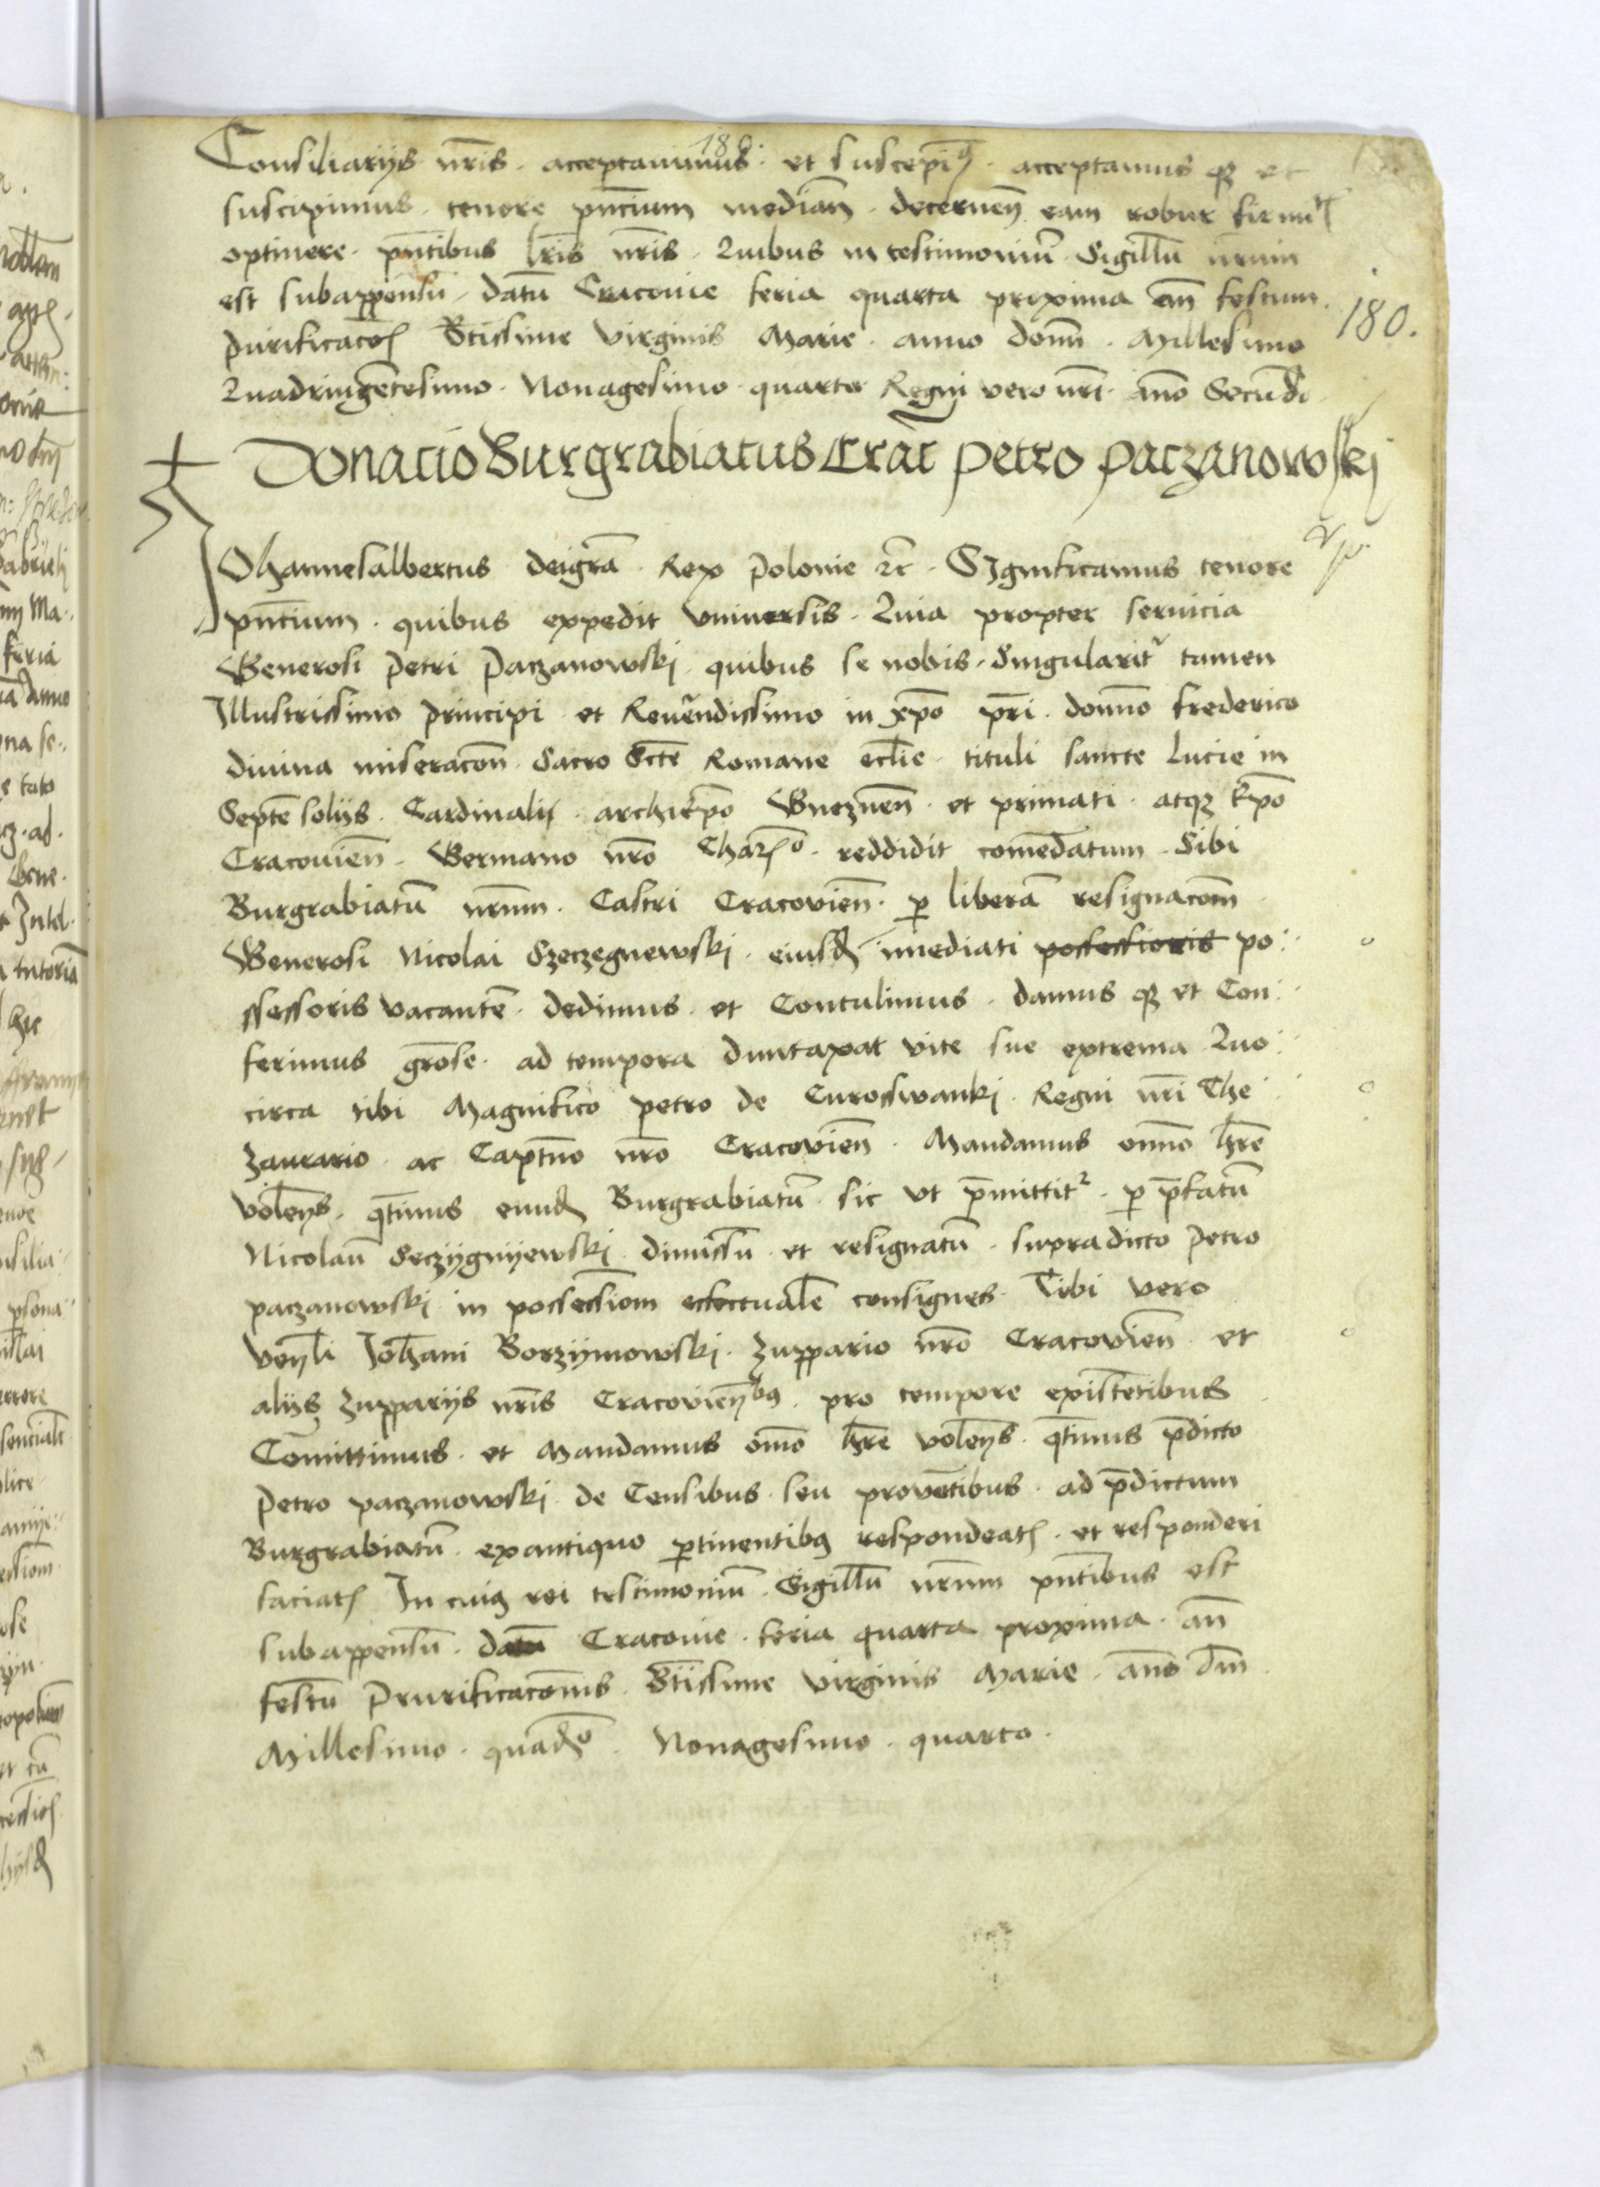 180.
Consiliarijs nr̄is acceptauimus et suscepim⁹ acceptamus qȝ et
suscipimus tenore pn̄cium median̄ decernen̄ eam robur firmit
optinere pn̄tibus lr̄is nr̄is Quibus in testimoniū Sigillū nr̄um
est subappensū datū Cracouie feria quarta proxima an̄ festum
purificacōis Btissime virginis Marie anno domī Millesimo
Quadringētesimo Nonagesimo quarto Regni vero nr̄i anō Secūdo
180.
Donacio Burgrabiatus Crac̄ petro paczanowskj
Johannesalbertus deigrā Rex polonie ꝛc̄ Significamus tenore
pn̄cium quibus expedit vniuersis Quia propter seruicia
Generosi petri paczanowskj quibus se nobis Singularit̄ tamen
Illustrissimo principi et Reuēndissimo in xpō pr̄i domīo frederico
diuina miseracōn Sacro Scte Romane ecl̄ie tituli sancte lucie in
Septē solijs Cardinalij archiep̄o Gneznen̄ et primati atqȝ Ep̄o
Cracouien̄ Germano nr̄o Char̄o reddidit comēdatum Sibi
Burgrabiatū nr̄um Castri Cracovien̄ p̱ liberā resignacōm
Generosi Nicolai Szeczegnewskj eiusd̄ īmediati possessioris po
ssessoris vacantē dedimus et Contulimus damus qȝ et Con
ferimus grōse ad tempora duntaxat vite sue extrema Quo
circa tibi Magnifico petro de Curosswankj Regni nr̄i The
zaurario ac Captn̄o nr̄o Cracovien̄ Mandamus omīo hr̄e
volens q̄tinus eund̄ Burgrabiatū sic vt p̄mittit᷑ p̱ p̄fatū
Nicolaū Seczijgnijewskj dimissū et resignatū supradicto petro
paczanowskj in possessiom effectualē consignes Tibi vero
Ven̄li Johāni Borzijmowskj Zuppario nr̄o Cracovien̄ et
alijs Zupparijs nr̄is Cracovien̄bꝫ pro tempore existētibus
Comīttimus et Mandamus omō hr̄e volens q̄tinus p̄dicto
petro paczanowskj de Censibus seu provētibus ad p̄dictum
Burgrabiatū exantiquo p̱tinentibꝫ respondeatꝭ et responderi
faciatꝭ In cuiꝰ rei testimoniū Sigillū nr̄um pn̄tibus est
subappensū datū Cracouie feria quarta proxima an̄
festū Prurificacōnis Btissime virginis Marie anō dm̄
Millesimo quad̄o Nonagesimo quarto